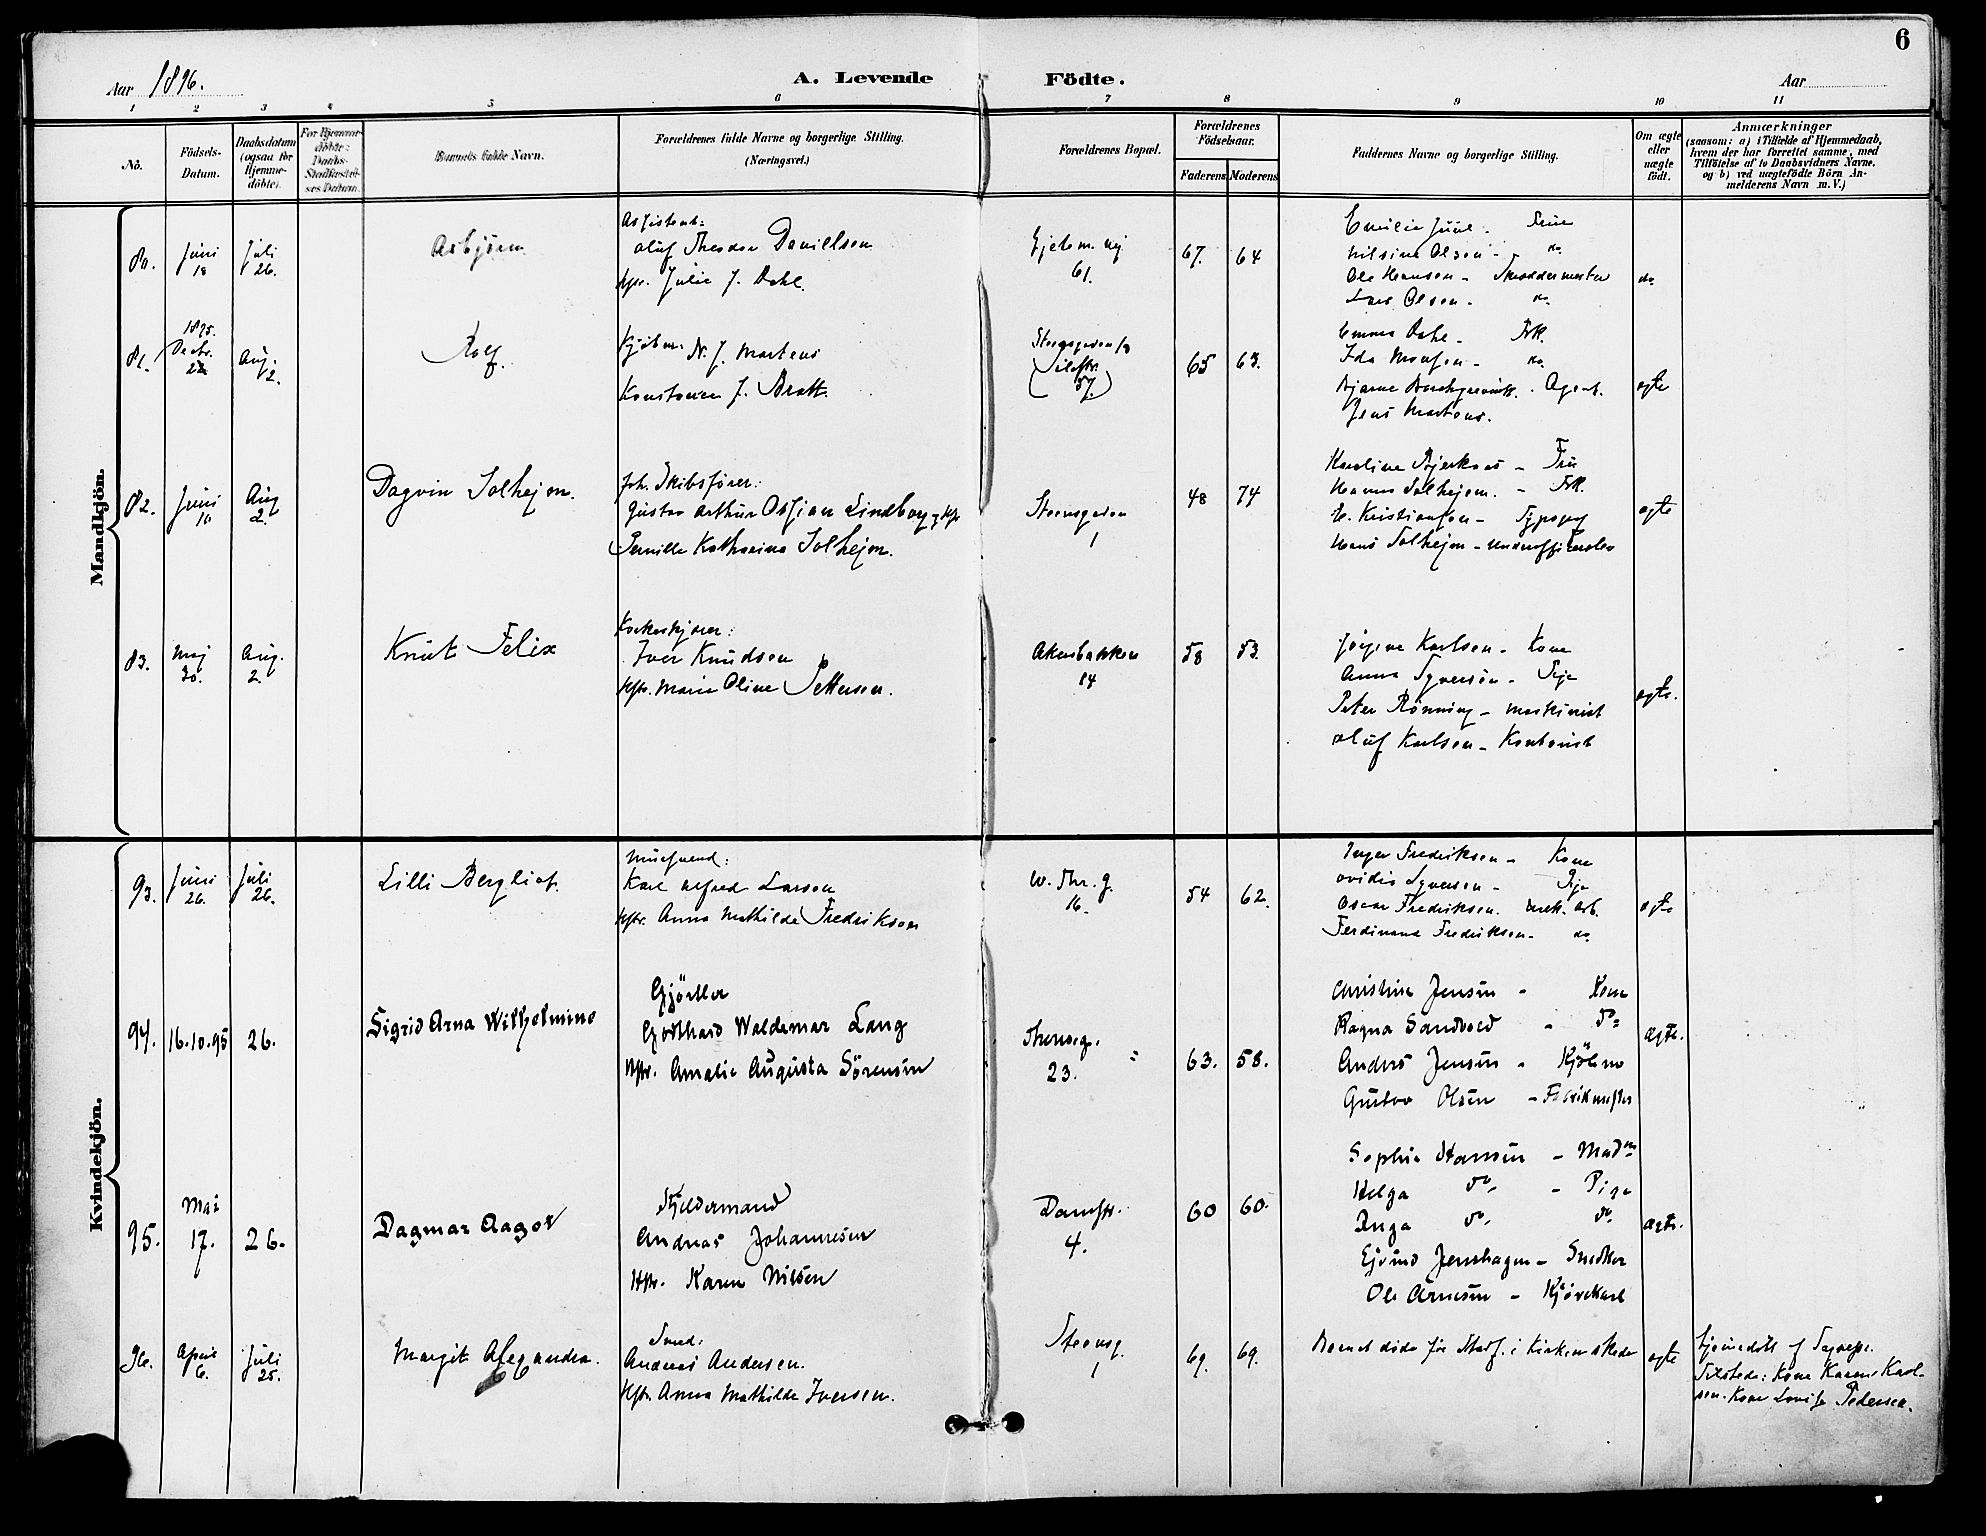 6
Aar 1896.
A. Levende Födte.
Aar
1 2 3 4 5 6 7 8 9 10 11
No.
Födsels-Datum.
Daabsdatum (ogsaa for Hjemme-döbte).
For Hjemme-döbte: Daabs-Stadfæstel-ses Datum.
Barnets fulde Navn.
Forældrenes fulde Navne og borgerlige Stilling.
(Næringsvei.)
Forældrenes Bopæl.
Forældrenes Födselsaar.
Faderens Moderens
Faddernes Navne og borgerlige Stilling.
Om ægte eller uægte födt.
Anmærkninger
(saasom: a) i Tilfælde af Hjemmedaab, hvem der har forrettet samme, med Tilföielse af to Daabsvidners Navne, og b) ved uægtefödte Börn An-melderens Navn m. V.)
Mandkjön.
80. Juni 18 Juli 26.
Asbjörn
Assistent:
Oluf Theodor Daniellsen
Hstr. Julie J. Dahl.
61.
67. 64
Emilie Juul - Frue
Nilsine Olsen - do
Ole Hansen - Skreddermester
Lars Olsen - do
do
81. 1895. Decbr. Aug. 2.
Rolf.
Kjöbm. N. J. Martens
J. Bratt.
57.
65 63.
Emma Dahl - Frk.
Ida Monsen - do
Bjarne - Agent.
Jens Martens.
ægte
82. Juni 10 Aug 2.
Dagvin Solhejm.
Skibsförer:
Gustav Arthur Ossian Lindborg, Hstr
Pernille Katharina Solhejm.
Steensgaden
1
48 74
Karoline Bjerknæs - Fru
Hanna Solhejm. - Frk.
H. Kristiansen - Typograf
Hans Solhejm -
ægte
83. Maj 30. Aug. 2.
Knut Felix
Iver Knudsen
Hstr. Marie Oline Pettersen.
Akersbakken
14
58 53.
Jörgine Karlsen - Kone
Anna Syversen - Pige
Peter Rönning - Maskinist
Oluf Karlsen - Kontorist
ægte.
Kvindekjön.
93. Juni 26. Juli 26.
Lilli Bergliot.
Karl Alfred Larsen
Hstr. Anna Mathilde Fredriksen
16.
54 62.
Inger Fredriksen - Kone
Ovidia Syversen - Pige
Oscar Fredriksen. Arb.
Ferdinand Fredriksen - do
ægte
94. 16.10.95 26.
Sigrid Arna Wilhelmine
Gjörtler
Gotthard Waldemar Lang
Hstr. Amalie Augusta Sörensen
23.
63. 58.
Christine Jensen - Kone
Ragna Sandvold - do
Anders Jensen - Kjöbm
Gustav Olsen - Fabrikmester
ægte.
95. Mai 17. 26.
Dagmar Aagot
Andreas Johannesen
Hstr. Karen Nilsen
Damstr.
4.
60 60.
Sophie Hansen - Madm
Helga do - Pige
Inga do do
Jenshagen - Snedker
Ole Arnesen - Kjörekarl
ægte.
96. April 6. Juli 25.
Margit Alexandra.
Smed:
Andreas Andersen.
Hstr. Anna Mathilde Iversen.
Steensg.
1
69. 69.
Barnet döde för Stadf. i Kirken skede
ægte
Hjemmedöbt af
Tilstede: Kone Karen Karl-
sen. Kone Lovise Pedersen.